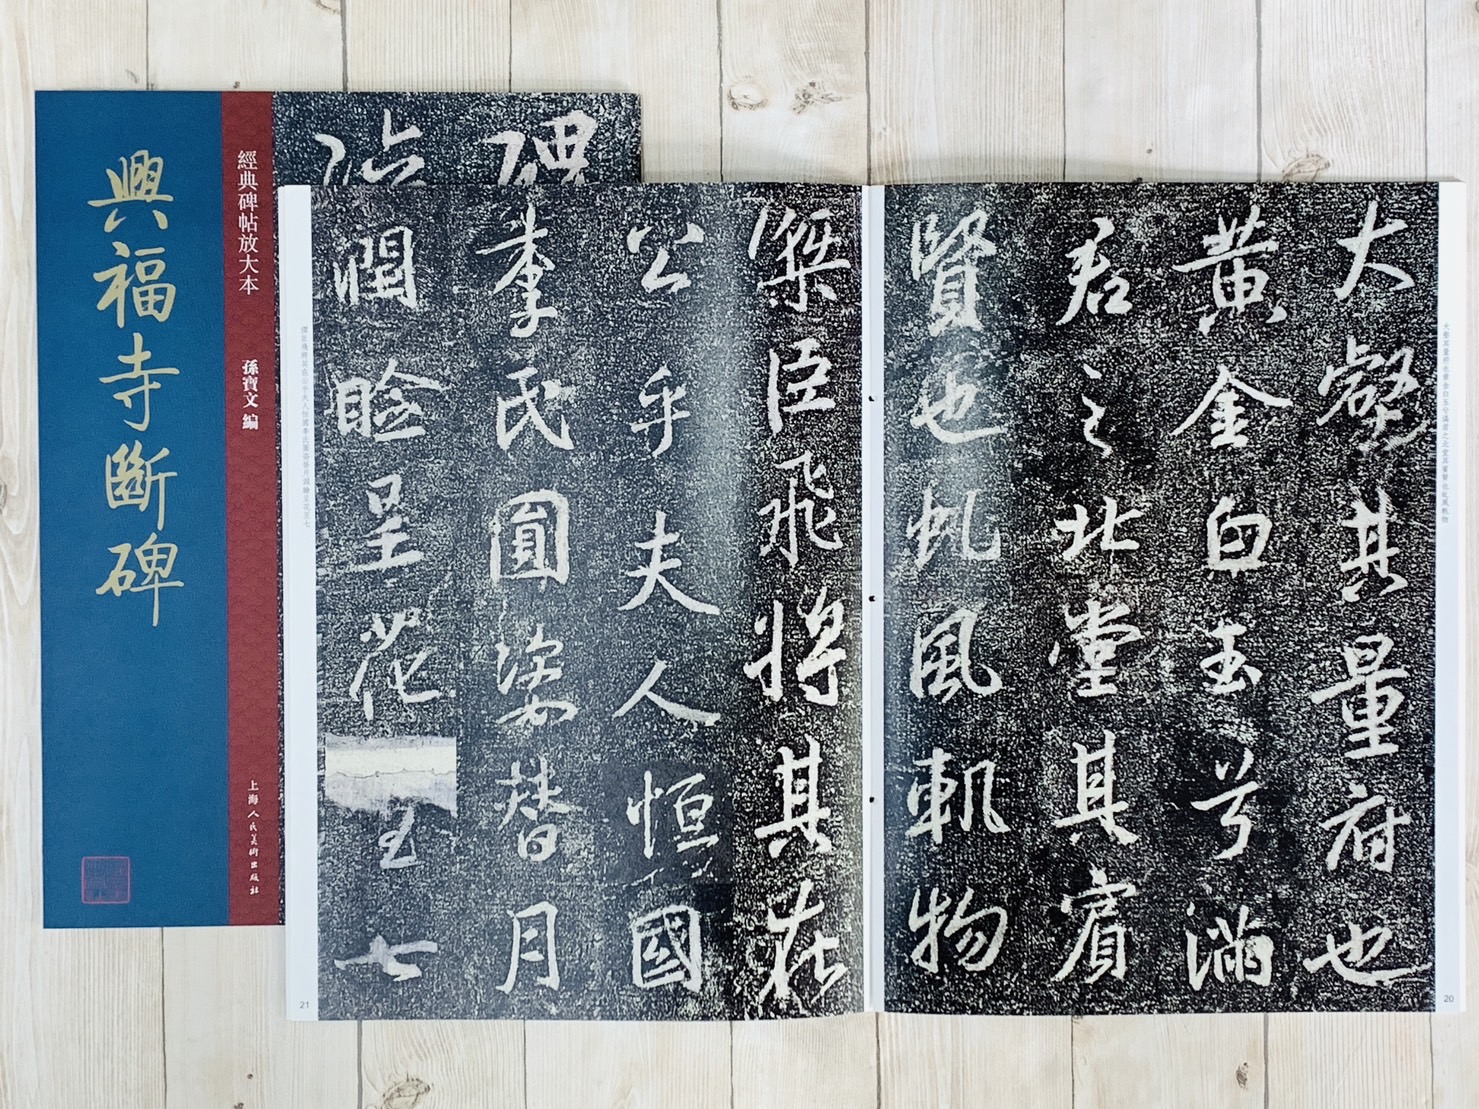 興福寺斷碑
經典碑帖放大本
孫寶文 編
上海人民美術出版社
碑
大壑其量府也
黃金白玉兮滿
君之北堂其賓
賢也虬風軌物
20
傑臣飛將其在
公乎夫人恒國
李氏圓姿替月
潤臉呈花
七
21